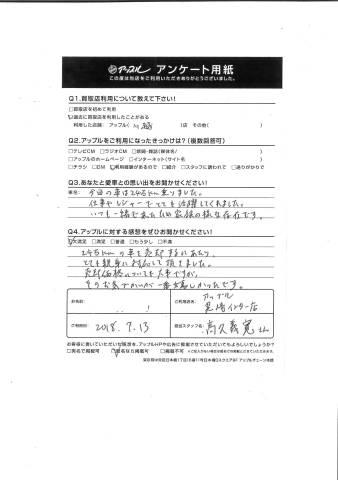 アップル アンケート用紙
この度は当店をご利用いただきありがとうございました。
Q1.買取店利用について教えて下さい!
□買取店を初めて利用
☑過去に買取店を利用したことがある
利用した店舗: アップル( )店 その他( )
Q2.アップルをご利用になったきっかけは?(複数回答可)
□テレビCM □ラジオCM □新聞・雑誌(媒体名/ )
□アップルのホームページ □インターネット(サイト名 )
□チラシ □DM ☑利用経験があるので □紹介 □スタッフに誘われて □通りがかりで
Q3.あなたと愛車との思い出をお聞かせください!
車名: 今回の車は24万km乗りました。
仕事やレジャーでとても活躍してくれました。
いつも一緒でしたので家族の様な存在です。
Q4.アップルに対する感想をぜひお聞かせください!
☑大満足 □満足 □普通 □もう少し □不満
24万kmの車を売却するにあたり、
とても親身に対応して頂きました。
売却価格についても大事ですが、
そのお気づかいが一番嬉しかったです。
お名前:
ご利用店名: アップル
インター店
ご利用日: 2018. 9. 13
担当スタッフ名: さん
お客様に書いていただいた感想を、アップルHPや広告に掲載させていただいてもよろしいでしょうか?
□実名で掲載可 ☑匿名なら掲載可 □掲載不可